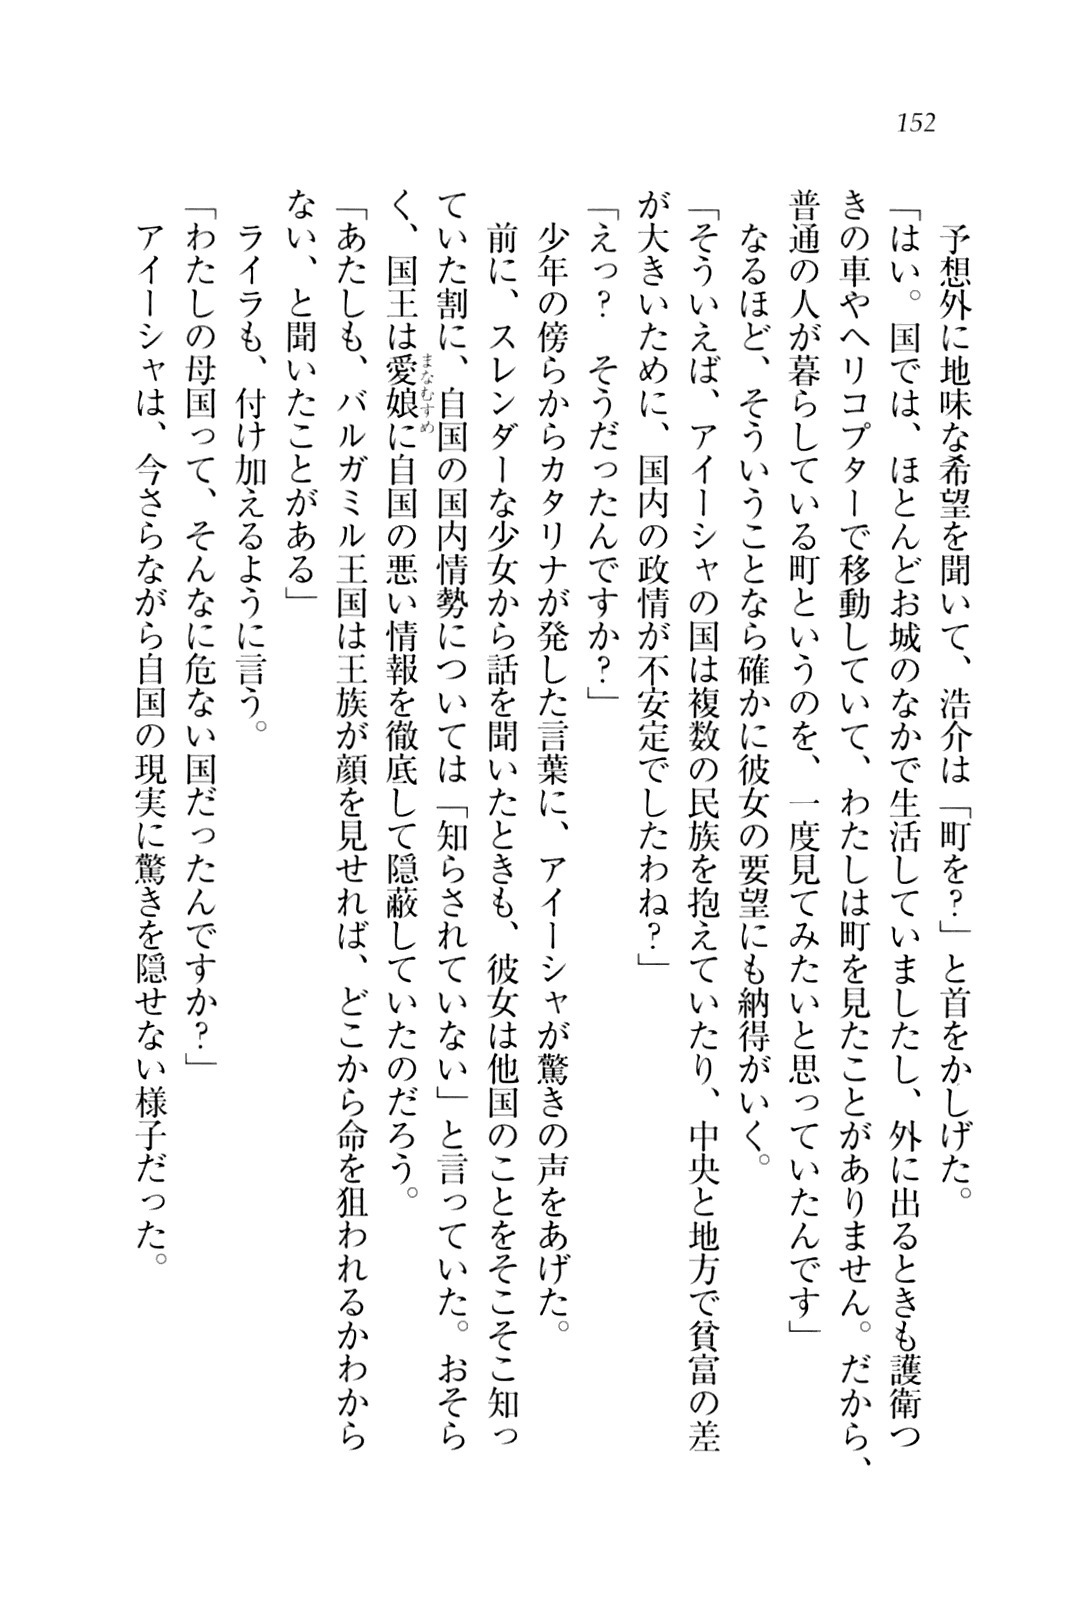 152
予想外に地味な希望を聞いて、浩介は「町を？」と首をかしげた。
「はい。国では、ほとんどお城のなかで生活していましたし、外に出るときも護衛つ
きの車やヘリコプターで移動していて、わたしは町を見たことがありません。だから、
普通の人が暮らしている町というのを、一度見てみたいと思っていたんです」
なるほど、そういうことなら確かに彼女の要望にも納得がいく。
「そういえば、アイーシャの国は複数の民族を抱えていたり、中央と地方で貧富の差
が大きいために、国内の政情が不安定でしたわね？」
「えっ？　そうだったんですか？」
少年の傍らからカタリナが発した言葉に、アイーシャが驚きの声をあげた。
前に、スレンダーな少女から話を聞いたときも、彼女は他国のことをそこそこ知っ
ていた割に、自国の国内情勢については「知らされていない」と言っていた。おそら
く、国王は愛娘に自国の悪い情報を徹底して隠蔽していたのだろう。
まなむすめ
「あたしも、バルガミル王国は王族が顔を見せれば、どこから命を狙われるかわから
ない、と聞いたことがある」
ライラも、付け加えるように言う。
「わたしの母国って、そんなに危ない国だったんですか？」
アイーシャは、今さらながら自国の現実に驚きを隠せない様子だった。